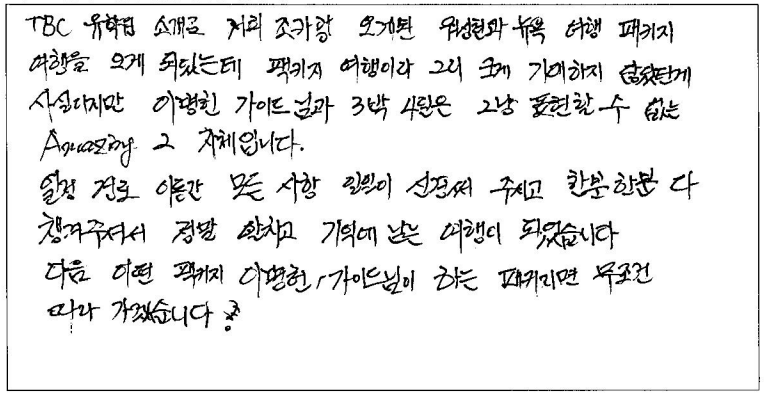 TBC 유학원 소개로 저희 조카랑 오게된 워싱턴과 뉴욕 여행 패키지
여행을 오게 되었는데 팩키지 여행이라 그리 크게 기대하지 않았던게
사실이지만 이병헌 가이드님과 3박 4일은 그냥 표현할 수 없는
Amazing 그 자체입니다.
일정 경로 이동간 모든 사항 일일이 신경써 주시고 한분한분 다
챙겨주셔서 정말 알차고 기억에 남는 여행이 되었습니다
다음 어떤 팩키지 이병헌 가이드님이 하는 패키지면 무조건
따라 가겠습니다